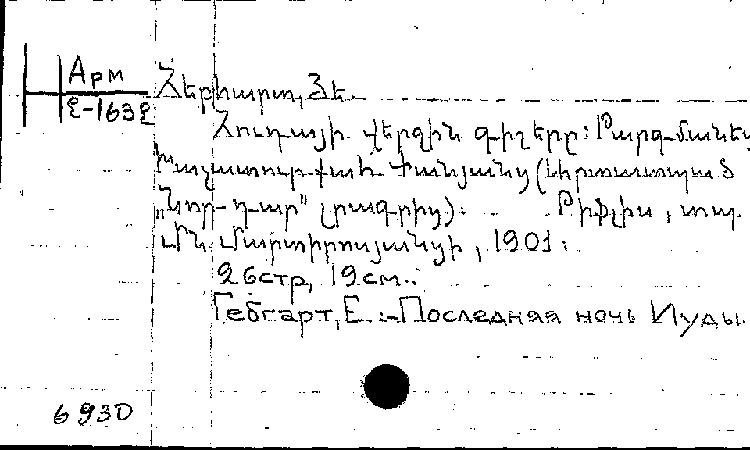 Арм
Հերհարտ, Յե.
Հուդայի վերջին գիշերը: Թարգմանեց
Խաչատուր քահ. Փանյանց (Արտատպած
„Նոր-դար" լրագրից): Թիֆլիս, տպ.
Մն. Մարտիրոսյանցի, 1901:
26стр, 19см.
Гебгарт, Е. :-Последняя ночь Иуды.
6930